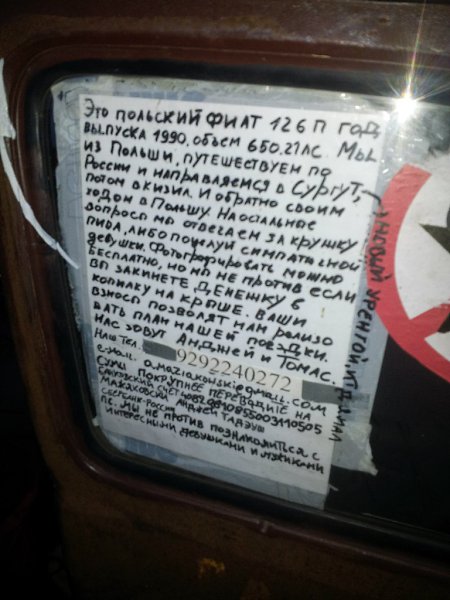 Это польский фиат 126п год
выпуска 1990, объем 650.21лс. Мы
из Польши, путешествуем по
России и направляемся в Сургут,
потом в Кизил. И обратно своим
ходом в Польшу. На остальные
вопросы мы отвечаем за кружку
пива, либо поцелуй симпатичной
девушки. Фотографировать можно
бесплатно, но мы не против если
вы закинете денежку в
копилку на крыше. Ваши
взносы позволят нам реализо
вать план нашей поездки.
Нас зовут Анджей и Томас.
Наш тел. 9292240272
e-mail. amaziakowski@gmail.com
Суммы покрупнее переводите на
банковский счёт
Мажяковский Анджей Тадэуш
Сбербанк-России
пс. Мы не против познакомиться с
интересными девушками и мужиками
Новый Уренгой, Ямал